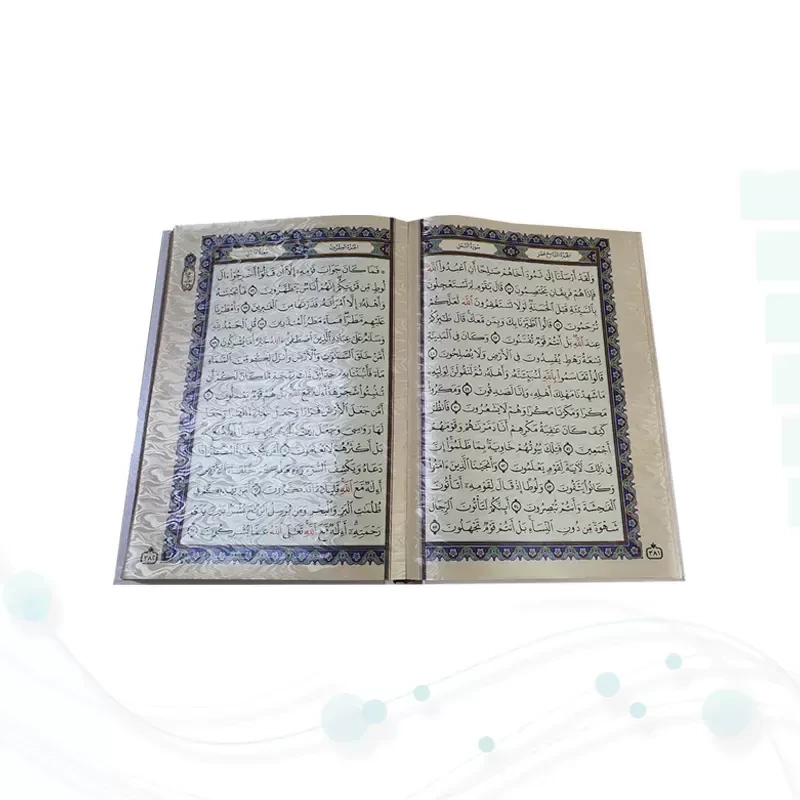 الجزء التاسع عشر سورة النمل
وَلَقَدْ أَرْسَلْنَآ إِلَىٰ ثَمُودَ أَخَاهُمْ صَٰلِحًا أَنِ ٱعْبُدُوا۟ ٱللَّهَ
فَإِذَا هُمْ فَرِيقَانِ يَخْتَصِمُونَ ٤٥ قَالَ يَٰقَوْمِ لِمَ تَسْتَعْجِلُونَ
بِٱلسَّيِّئَةِ قَبْلَ ٱلْحَسَنَةِ لَوْلَا تَسْتَغْفِرُونَ ٱللَّهَ لَعَلَّكُمْ
تُرْحَمُونَ ٤٦ قَالُوا۟ ٱطَّيَّرْنَا بِكَ وَبِمَن مَّعَكَ قَالَ طَٰٓئِرُكُمْ
عِندَ ٱللَّهِ بَلْ أَنتُمْ قَوْمٌ تُفْتَنُونَ ٤٧ وَكَانَ فِى ٱلْمَدِينَةِ
تِسْعَةُ رَهْطٍ يُفْسِدُونَ فِى ٱلْأَرْضِ وَلَا يُصْلِحُونَ ٤٨
قَالُوا۟ تَقَاسَمُوا۟ بِٱللَّهِ لَنُبَيِّتَنَّهُۥ وَأَهْلَهُۥ ثُمَّ لَنَقُولَنَّ لِوَلِيِّهِۦ
مَا شَهِدْنَا مَهْلِكَ أَهْلِهِۦ وَإِنَّا لَصَٰدِقُونَ ٤٩ وَمَكَرُوا۟
مَكْرًا وَمَكَرْنَا مَكْرًا وَهُمْ لَا يَشْعُرُونَ ٥٠ فَٱنظُرْ
كَيْفَ كَانَ عَٰقِبَةُ مَكْرِهِمْ أَنَّا دَمَّرْنَٰهُمْ وَقَوْمَهُمْ
أَجْمَعِينَ ٥١ فَتِلْكَ بُيُوتُهُمْ خَاوِيَةًۢ بِمَا ظَلَمُوٓا۟ إِنَّ
فِى ذَٰلِكَ لَءَايَةً لِّقَوْمٍ يَعْلَمُونَ ٥٢ وَأَنجَيْنَا ٱلَّذِينَ ءَامَنُوا۟
وَكَانُوا۟ يَتَّقُونَ ٥٣ وَلُوطًا إِذْ قَالَ لِقَوْمِهِۦٓ أَتَأْتُونَ
ٱلْفَٰحِشَةَ وَأَنتُمْ تُبْصِرُونَ ٥٤ أَئِنَّكُمْ لَتَأْتُونَ ٱلرِّجَالَ
شَهْوَةً مِّن دُونِ ٱلنِّسَآءِ بَلْ أَنتُمْ قَوْمٌ تَجْهَلُونَ ٥٥
٣٨١
الجزء العشرون
فَمَا كَانَ جَوَابَ قَوْمِهِۦٓ إِلَّآ أَن قَالُوٓا۟ أَخْرِجُوٓا۟ ءَالَ
لُوطٍ مِّن قَرْيَتِكُمْ إِنَّهُمْ أُنَاسٌ يَتَطَهَّرُونَ ٥٦ فَأَنجَيْنَٰهُ
وَأَهْلَهُۥٓ إِلَّا ٱمْرَأَتَهُۥ قَدَّرْنَٰهَا مِنَ ٱلْغَٰبِرِينَ ٥٧ وَأَمْطَرْنَا
عَلَيْهِم مَّطَرًا فَسَآءَ مَطَرُ ٱلْمُنذَرِينَ ٥٨ قُلِ ٱلْحَمْدُ لِلَّهِ
وَسَلَٰمٌ عَلَىٰ عِبَادِهِ ٱلَّذِينَ ٱصْطَفَىٰٓ ءَآللَّهُ خَيْرٌ أَمَّا يُشْرِكُونَ ٥٩
أَمَّنْ خَلَقَ ٱلسَّمَٰوَٰتِ وَٱلْأَرْضَ وَأَنزَلَ لَكُم مِّنَ ٱلسَّمَآءِ
مَآءً فَأَنۢبَتْنَا بِهِۦ حَدَآئِقَ ذَاتَ بَهْجَةٍ مَّا كَانَ لَكُمْ أَن
تُنۢبِتُوا۟ شَجَرَهَآ أَءِلَٰهٌ مَّعَ ٱللَّهِ بَلْ هُمْ قَوْمٌ يَعْدِلُونَ ٦٠
أَمَّن جَعَلَ ٱلْأَرْضَ قَرَارًا وَجَعَلَ خِلَٰلَهَآ أَنْهَٰرًا وَجَعَلَ
لَهَا رَوَٰسِىَ وَجَعَلَ بَيْنَ ٱلْبَحْرَيْنِ حَاجِزًا أَءِلَٰهٌ مَّعَ ٱللَّهِ
بَلْ أَكْثَرُهُمْ لَا يَعْلَمُونَ ٦١ أَمَّن يُجِيبُ ٱلْمُضْطَرَّ إِذَا
دَعَاهُ وَيَكْشِفُ ٱلسُّوٓءَ وَيَجْعَلُكُمْ خُلَفَآءَ ٱلْأَرْضِ
أَءِلَٰهٌ مَّعَ ٱللَّهِ قَلِيلًا مَّا تَذَكَّرُونَ ٦٢ أَمَّن يَهْدِيكُمْ فِى
ظُلُمَٰتِ ٱلْبَرِّ وَٱلْبَحْرِ وَمَن يُرْسِلُ ٱلرِّيَٰحَ بُشْرًۢا بَيْنَ يَدَىْ
رَحْمَتِهِۦٓ أَءِلَٰهٌ مَّعَ ٱللَّهِ تَعَٰلَى ٱللَّهُ عَمَّا يُشْرِكُونَ ٦٣
٣٨٢